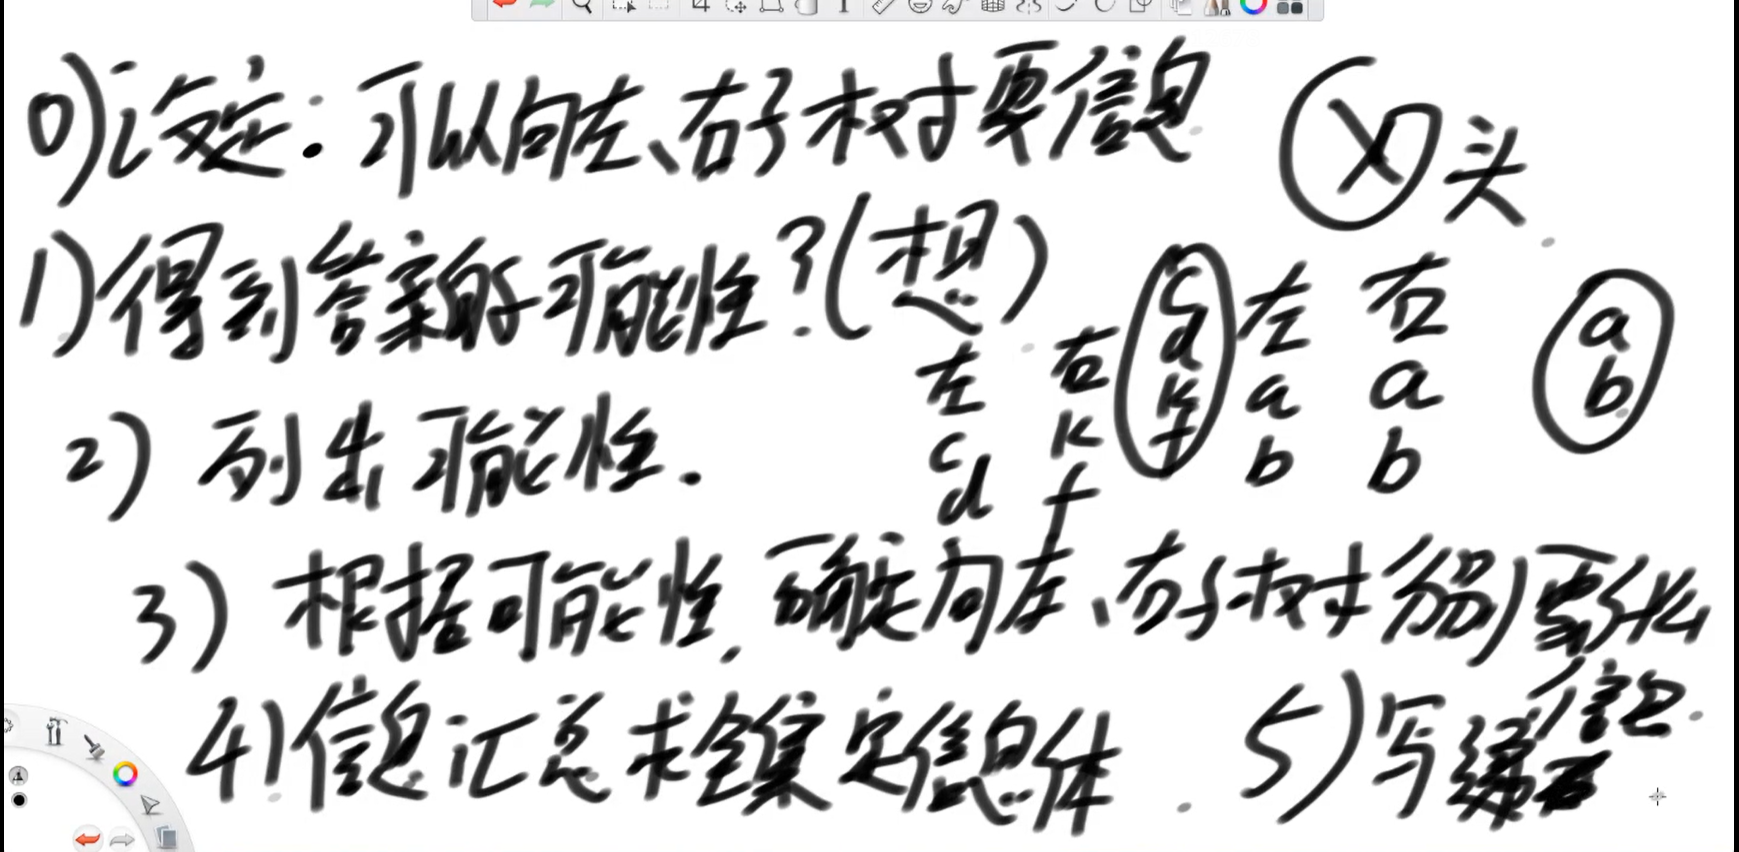 0)设定:可以向左、右子树要信息
X 头
1)得到答案的可能性?(想)
左 右 c 左 右 a
c k d a a b
d f k b b
f
2)列出可能性.
3)根据可能性,确定向左、右子树分别要什么信息.
4)信息汇总求全集定信息体.
5)写